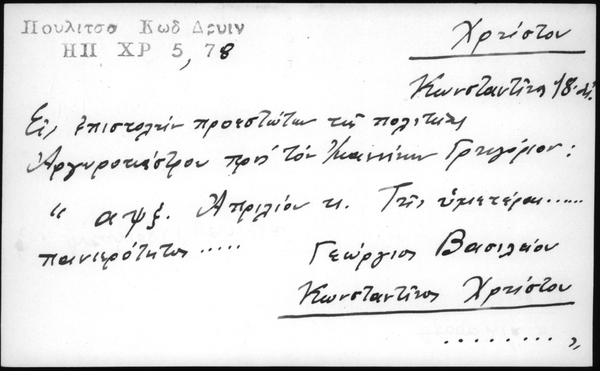 Πουλιτσα Κωδ Δρυιν
ΗΠ ΧΡ 5, 78
Χρήστου
Κωνσταντῖνος 18 αἰ.
Εἰς ἐπιστολὴν προεστώτων τῆς πολιτείας
Ἀργυροκάστρου πρὸς τὸν Ἰωαννίνων Γρηγόριον:
" αψξ. Ἀπριλίου κ. Τῆς ὑμετέρας.....
πανιερότητος .....
Γεώργιος Βασιλείου
Κωνσταντῖνος Χρήστου
........ "